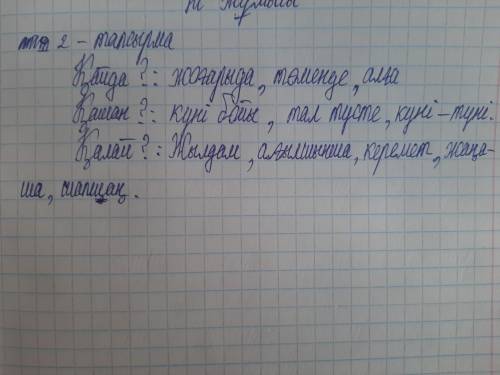 жұмысы
2 - тапсырма
Қайда ?: жоғарыда, төменде, алға
Қашан ?: күні бойы, тал түсте, күні-түні.
Қалай ?: Жылдам, ағылшынша, керемет, жаңа-
ша, шапшаң.